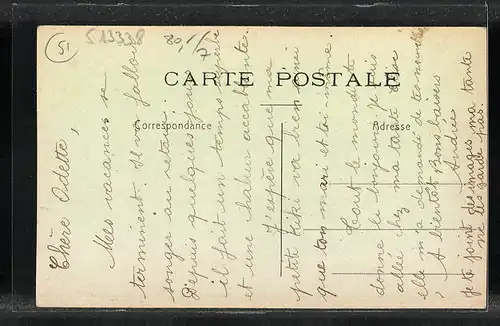 51
513338
CARTE POSTALE
Correspondance
Adresse
Chère Odette,
Mes vacances se
terminent. Il va falloir
songer au retour.
Depuis quelques jours
il fait un temps superbe
et une chaleur accablante.
J'espère que ma
petite Kiki va bien ainsi
que ton mari et toi-même.
Tout le monde te
donne le bonjour. Je suis
allée chez ma tante
elle m'a demandé de tes nouvelles
A bientôt Bons baisers
Andrée
Je te joint des images ma tante
ne les garde pas.